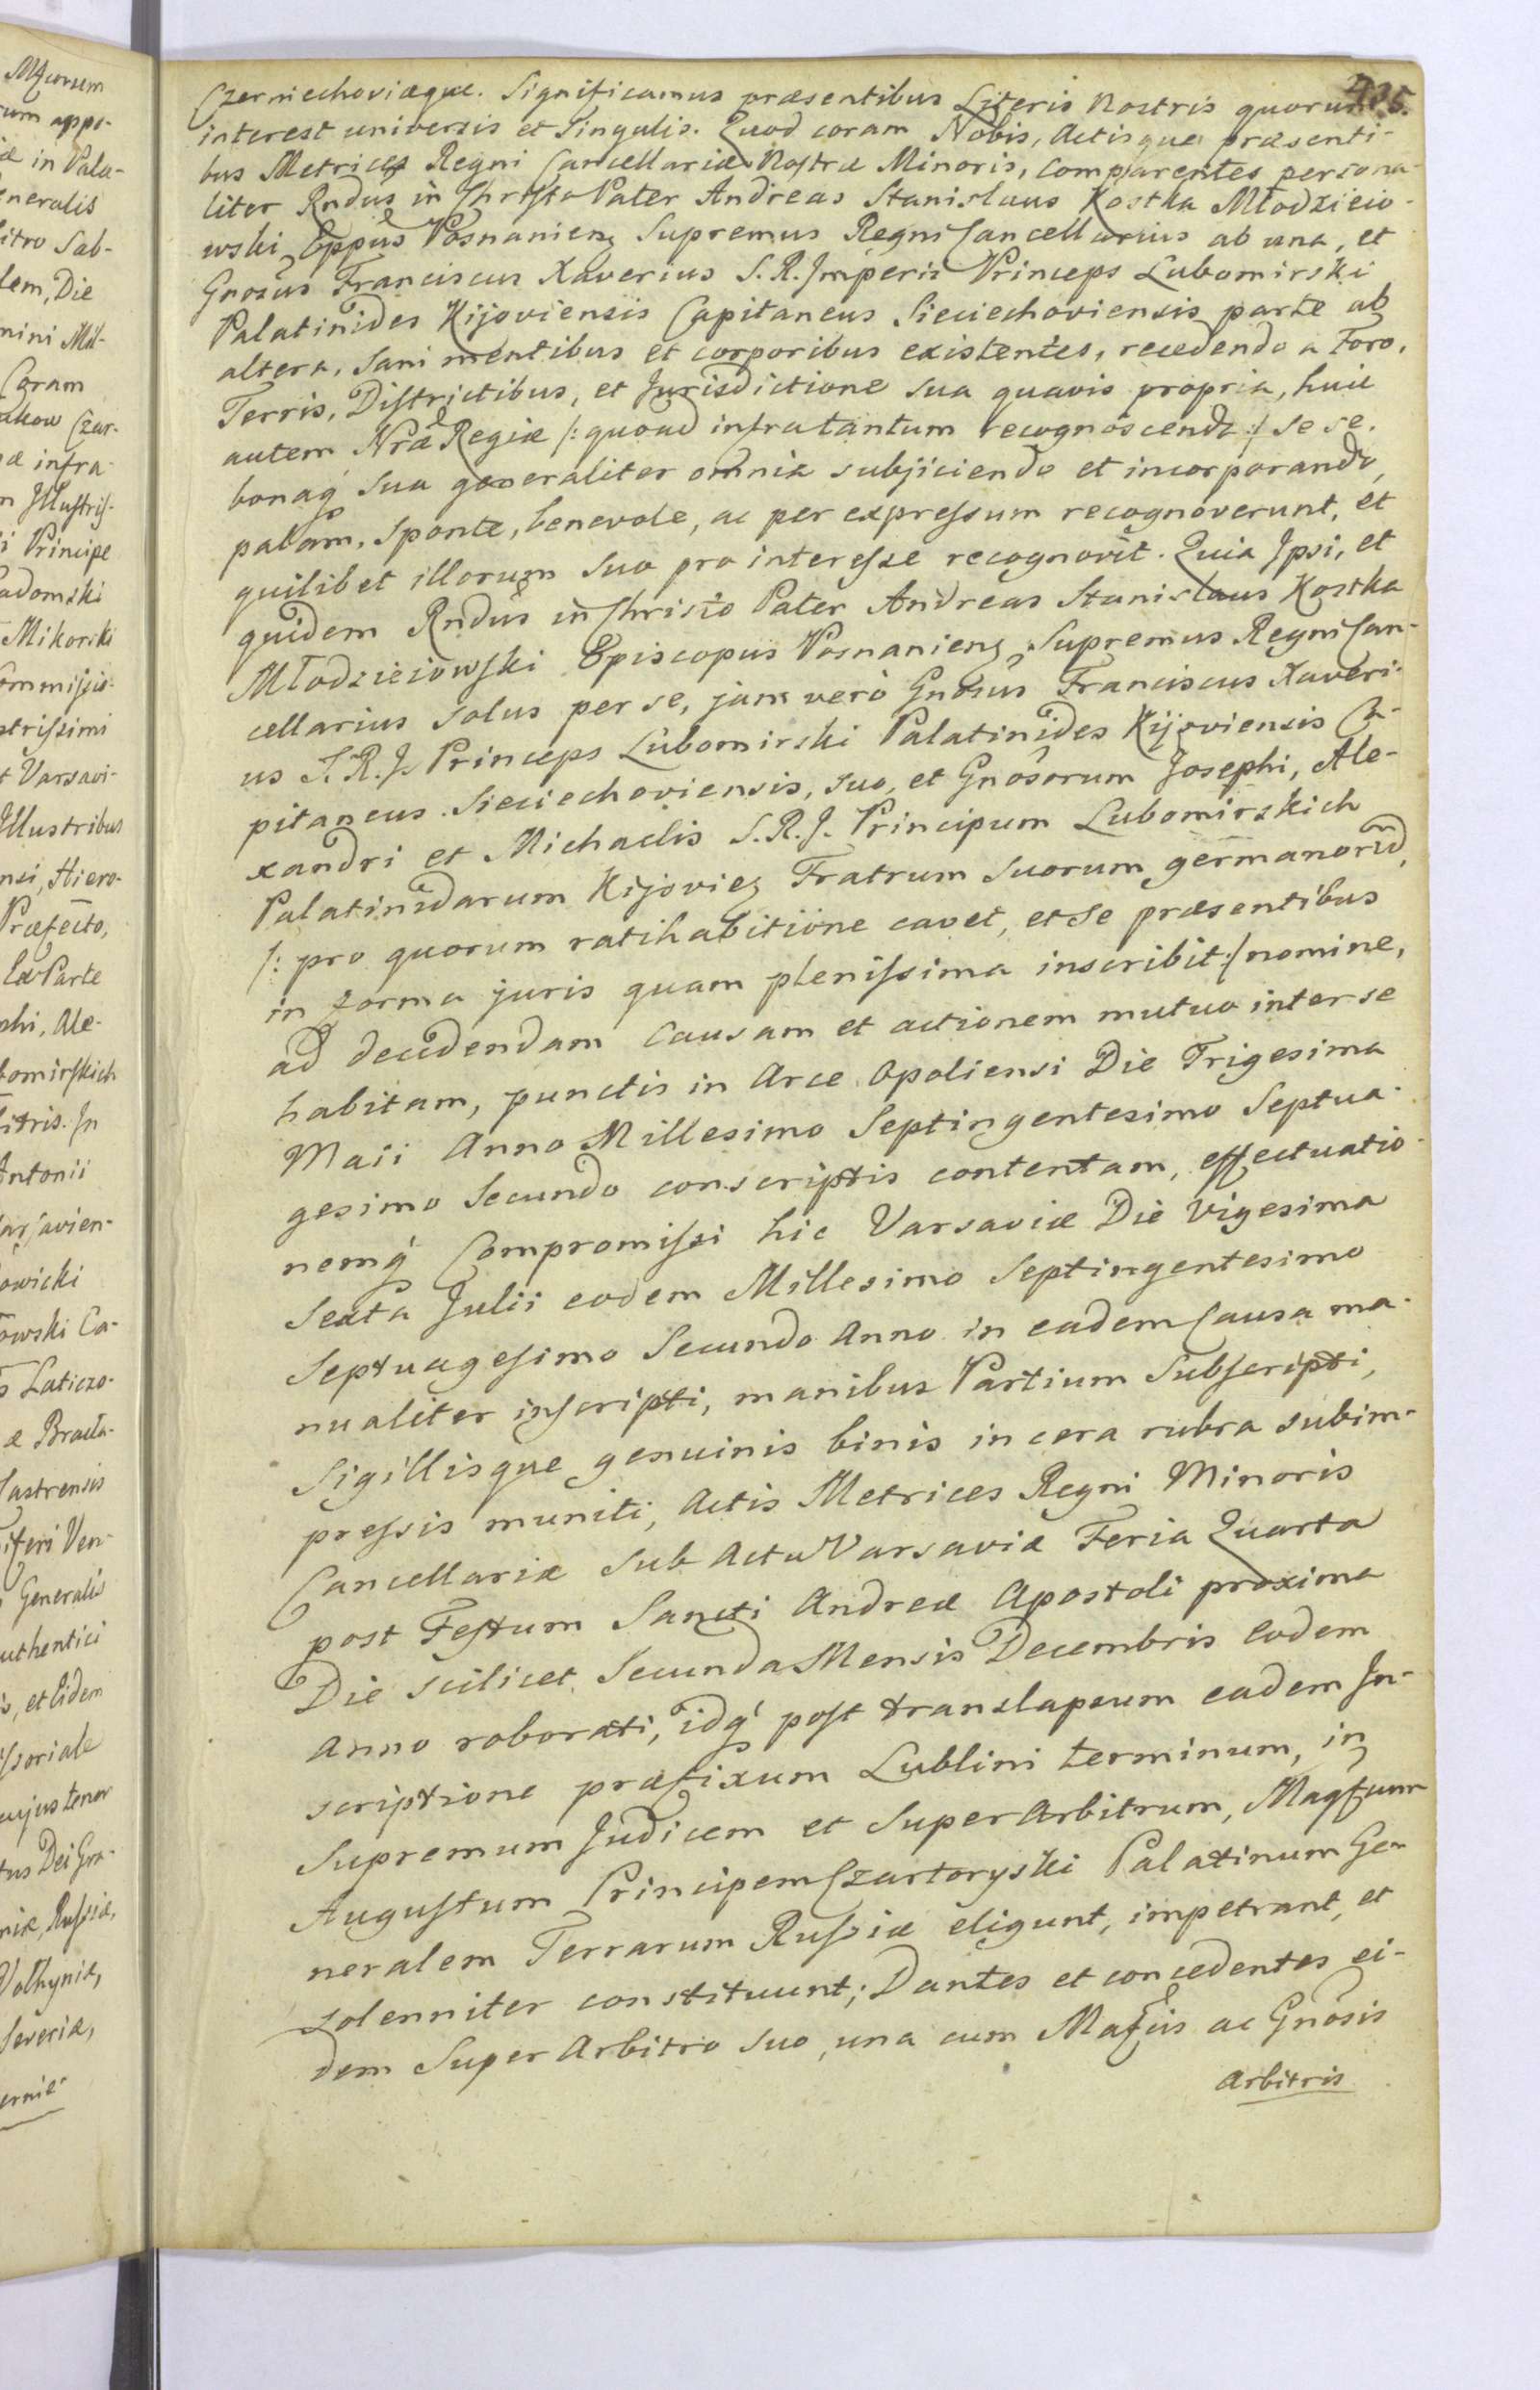 Mfcorum
rum appo-
iæ in Pala-
eneralis
itro Sab-
dem, Die
mini Mil-
Coram
akow Czar-
æ infra-
m Illustris-
i Principe
adomski
Mikorski
Commissio-
strissimi
t Varsavi-
Illustribus
nsi, Hiero-
Præfecto,
Ex Parte
phi, Ale-
bomirskich
itris. In
Antonii
arsavien-
owicki
owski Ca-
s Laticzo-
æ Bracla-
Castrensis
iferi Ven-
Generalis
uthentici
is, et Eidem
issoriale
cujus tenor
tus Dei Gra-
niæ, Russiæ,
Volhyniæ,
Severiæ,
erniæ-
405.
Czerniechoviæque. Significamus præsentibus Literis Nostris quorum
interest universis et Singulis. Quod coram Nobis, Actisque præsenti-
bus Metrices Regni Cancellariæ Nostræ Minoris, comparentes persona-
liter Rndus in Christo Pater Andreas Stanislaus Kostka Młodzieio-
wski Eppus Posnanien Supremus Regni Cancellarius ab una, et
Gnosus Franciscus Xaverius S. R. Imperii Princeps Lubomirski
Palatinides Kijoviensis Capitaneus Sieciechoviensis parte ab
altera, Sani mentibus et corporibus existentes, recedendo a Foro,
Terris, Districtibus, et Jurisdictione Sua quavis propria, huic
autem Nræ Regiæ /: quoad infra tantum recognoscenda :/ se se.
bonaq́ Sua generaliter omnia subjiciendo et incorporando,
palam, sponte, benevole, ac per expressum recognoverunt, et
quilibet illorum Suo pro interesse recognovit. Quia Ipsi, et
quidem Rndus in Christo Pater Andreas Stanislaus Kostka
Młodzieiowski Episcopus Posnanien Supremus Regni Can-
cellarius solus per se, jam verò Gnosus Franciscus Xaveri-
us S. R. J. Princeps Lubomirski Palatinides Kijoviensis Ca-
pitaneus Sieciechoviensis, suo, et Gnosorum Josephi, Ale-
xandri et Michaelis S. R. J. Principum Lubomirskich
Palatinidarum Kijovien Fratrum Suorum germanorum,
/: pro quorum ratihabitione cavet, et Se præsentibus
in forma juris quam plenissima inscribit :/ nomine,
ad decidendam Causam et actionem mutuo inter se
habitam, punctis in Arce Opoliensi Die Trigesima
Maii Anno Millesimo Septingentesimo Septua-
gesimo Secundo conscriptis contentam, effectuatio-
nemq́ Compromissi hic Varsaviæ Die Vigesima
Sexta Julii eodem Millesimo Septingentesimo
Septuagesimo Secundo Anno in eadem Causa ma-
nualiter inscripti, manibus Partium Subscripti,
Sigillisque genuinis binis in cera rubra subim-
pressis muniti, Actis Metrices Regni Minoris
Cancellariæ Sub Actu Varsaviæ Feria Quarta
post Festum Sancti Andreæ Apostoli proxima
Die scilicet Secunda Mensis Decembris Eodem
Anno roborati, idq́ post translapsum eadem In-
scriptione præfixum Lublini terminum, in
Supremum Judicem et Super Arbitrum, Magfcum
Augustum Principem Czartoryski Palatinum Ge-
neralem Terrarum Russiæ eligunt, impetrant, et
solenniter constituunt; Dantes et concedentes ei-
dem Super Arbitro Suo, una cum Magfcis ac Gnosis
Arbitris